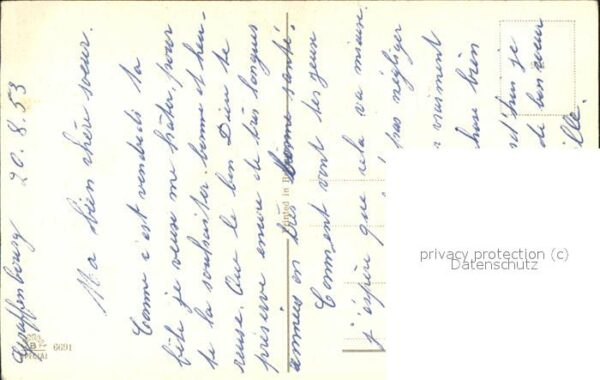 20.8.53
Ma bien chère soeur.
Comme c'est vendredi ta
fête je veux me hâter, pour
te la souhaiter bonne et heu-
reuse. Que le bon Dieu te
préserve encore de très longues
années en très bonne santé.
Comment vont tes yeux
j'espère que cela va mieux.
pas négliger
vraiment
chose bien
d'hui je
de bon coeur
Printed in
6691
privacy protection (c)
Datenschutz